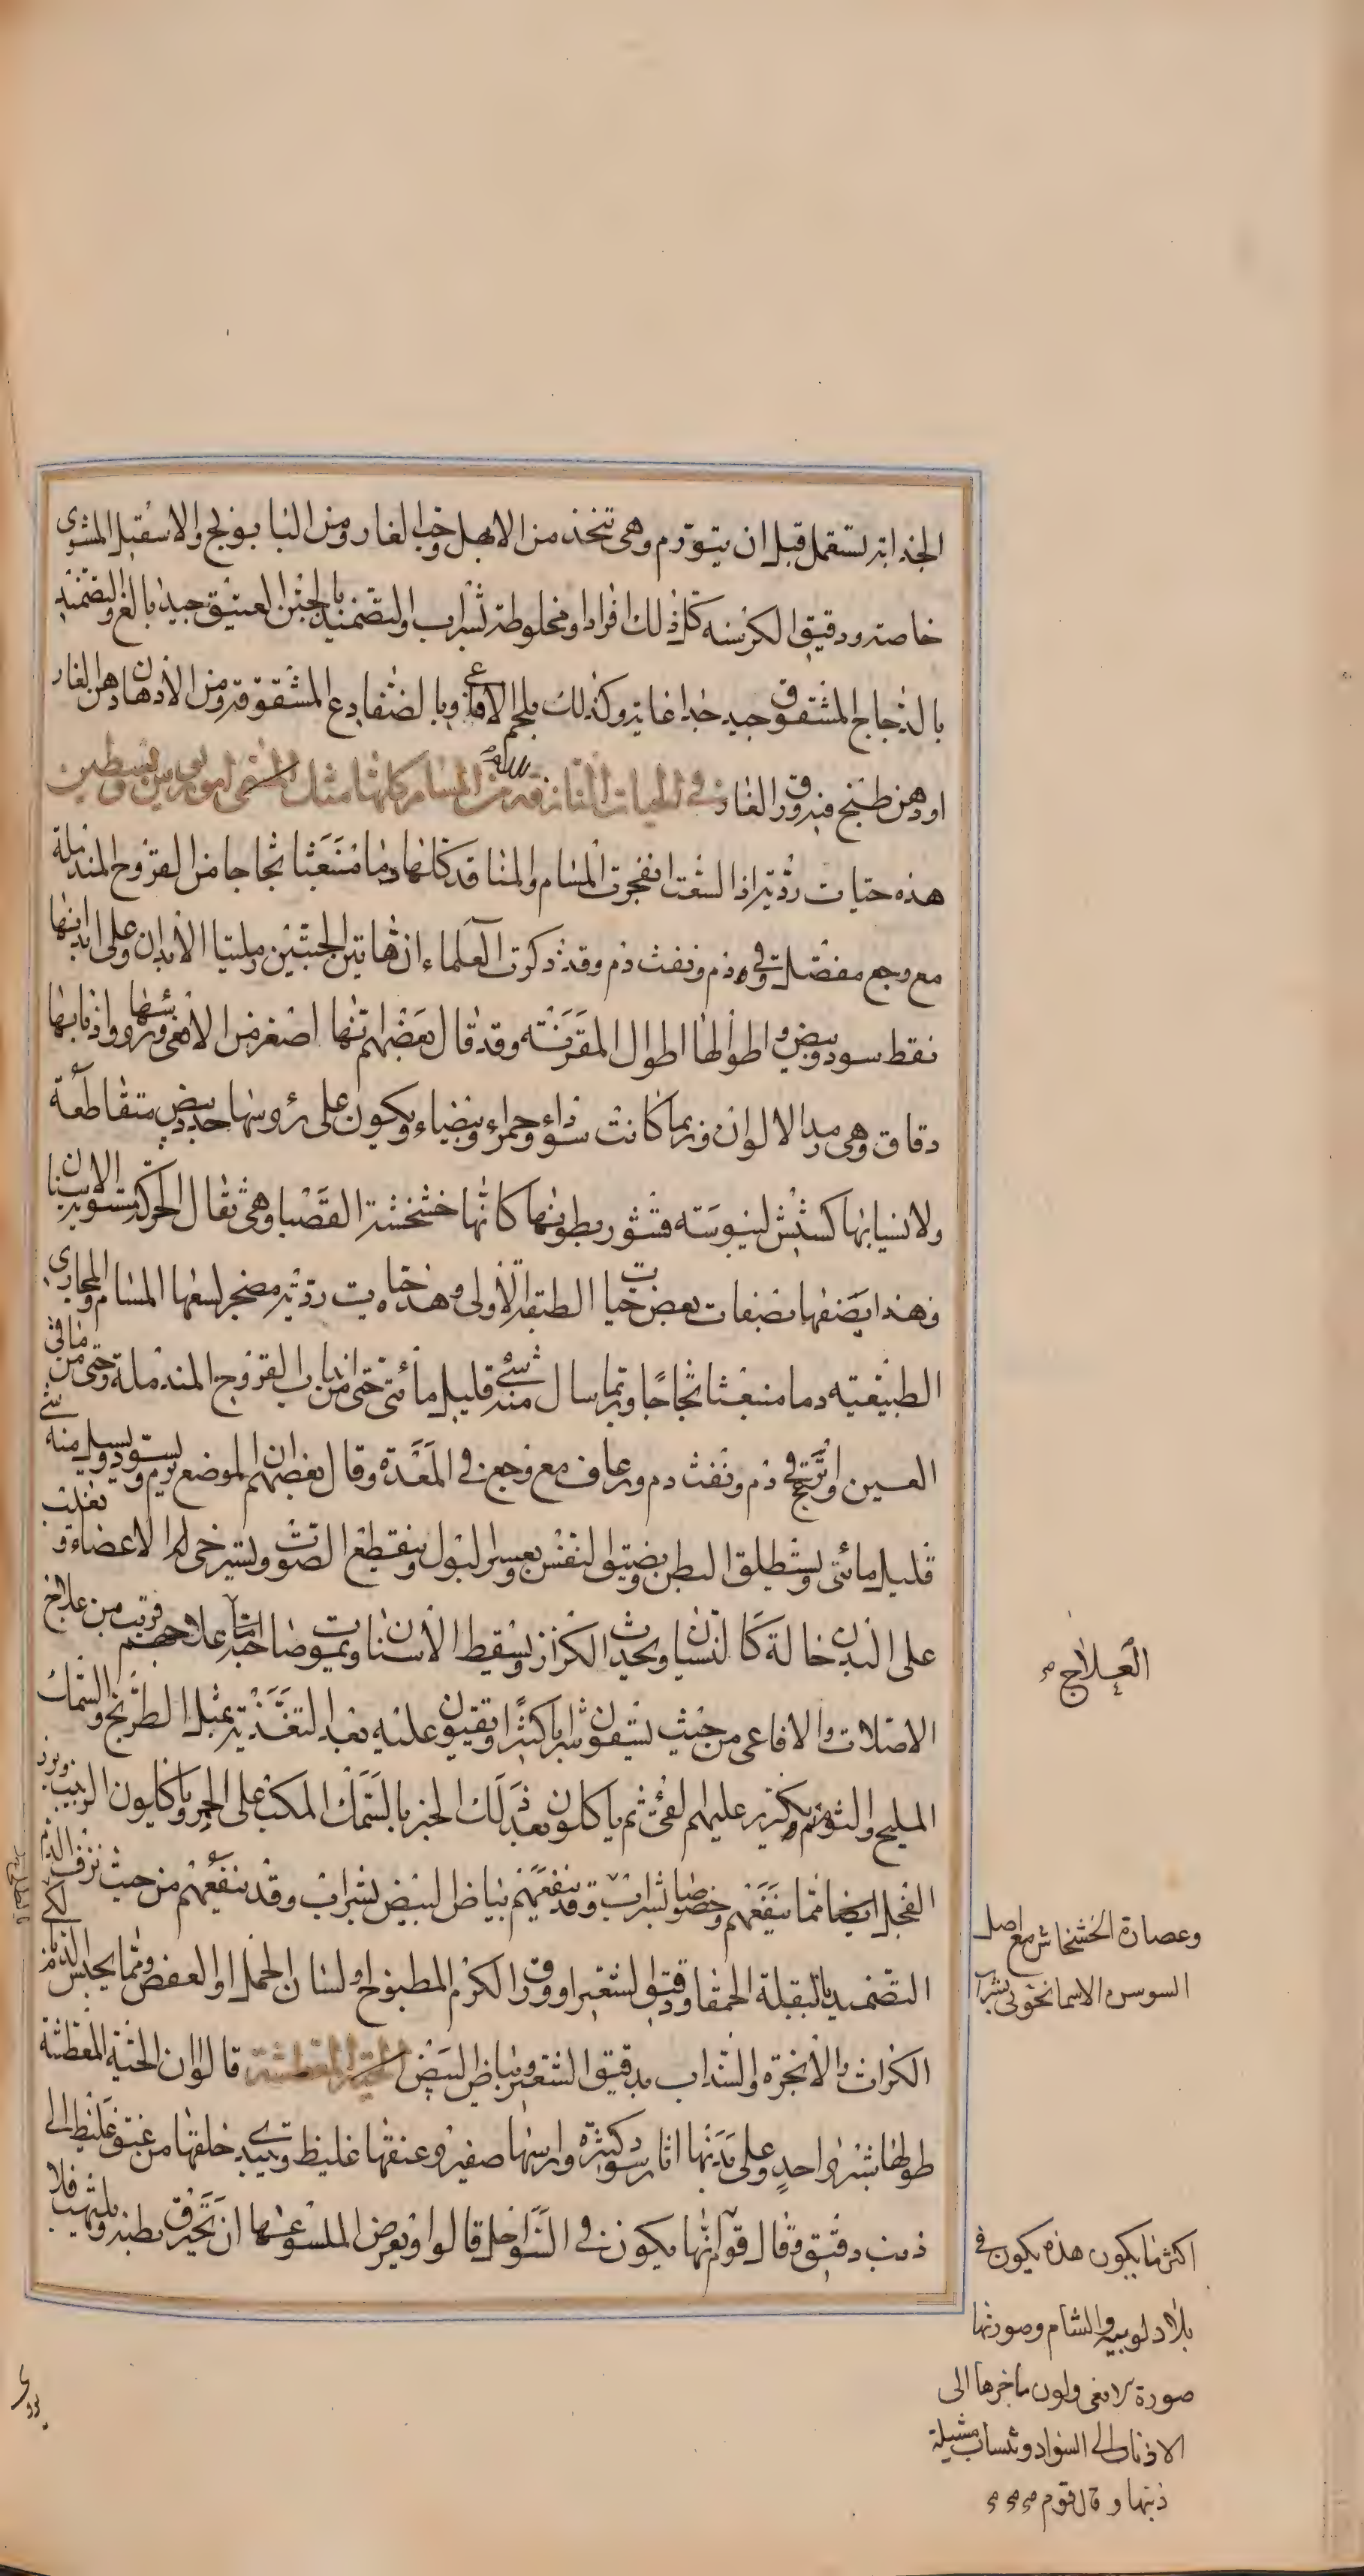 الجذابة تستعمل قبل ان يتورم وهى تتخذ من الابهل وحب الغار ومن البابونج والاسقيل المشوى
خاصة ودقيق الكرسنه كل ذلك افرادا ومخلوطة بشراب والتضميد بالجبن العتيق جيد بالغ والتضميد
بالدجاج المشقوق جيد جدا غاية وكذلك بلحم الافاعى وبالضفادع المشقوقة ومن الادهان دهن الغار
اودهن طبخ فيه ورق الغار في الحيات النازفة من المسام كلها مثل
هذه حيات ردية اذا لسعت انفجرت المسام والمنافذ كلها دما منبعثا ثجاجا من القروح المندملة
مع وجع مفصل وقى دم ونفث دم وقد ذكرت العلماء ان هاتين الحيتين رمليتا الابدان وعلى ابدانها
نقط سود وبيض واطوالها اطوال المقرنة وقد قال بعضهم انها اصغر من الافعى ورؤسها واذنابها
دقاق وهى رمد الالوان وربما كانت سوداء وحمراء وبيضاء ويكون على رؤوسها جدد بيض متقاطعة
ولانسيابها كشيش ليبوسته قشور بطونها كانها خشخشة القصبا وهى ثقال الحركة مستوية الاسنان
وهذا يصفها بصفات بعض حيات الطبقة الاولى وهذه حيات ردية مضجر لسعها المسام والمجارى
الطبيعيه دما منبعثا ثجاجا وربما سال منه شئ قليل مائى حتى من انداب القروح المندملة وحتى من ماقى
العين او تهيج قى دم ونفث دم ورعاف مع وجع فى المعدة وقال بعضهم ان الموضع يرم ويسود ويسيل منه شئ
قليل مائى ويستطلق البطن ويضيق النفس ويعسر البول وينقطع الصوت ويسترخى له الاعضاء و تغلب
على البدن حالة كالنسيان ويحدث الكزاز وتسقط الاسنان ويموت صاحبه اما علاجهم فقريب من علاج
الاصلات والافاعى من حيث يسقون شرابا كثيرا ويتقيون عليه بعد التغذية بمثل الطريخ والسمك
المليح والثوم ويكرر عليهم القئ ثم ياكلون بعد ذلك الخبز بالسمك المكبب على الجمر وياكلون الزبيب وبزر
الفجل ايضا مما ينفعهم وخصوصا بشراب وقد ينفعهم بياض البيض بشراب وقد ينفعهم من حيث نزف الدم
التضميد بالبقلة الحمقا ودقيق الشعير او ورق الكرم المطبوخ او لسان الحمل او العفص ومما يحبس الدم
الكراث والانجرة والسداب بدقيق الشعير وبياض البيض الحية المعطشة قالوا ان الحية المعطشة
طولها شبر واحد وعلى بدنها اثار سود كثيرة وراسها صغير وعنقها غليظ ويبتدى خلقها من عنق غليظ الى
ذنب دقيق وقال قوم انها يكون فى السواحل قالوا ويعرض للملسوع عنها ان تحترق بطنه ويلتهب فلا
العلاج
وعصارة الخشخاش مع اصل
السوسن الاسمانجونى بشراب
اكثر ما يكون هذه يكون فى
بلاد لوبيه والشام وصورتها
صورة الافعى ولون ماخرها الى
الاذناب الى السواد وتنساب مشيلة
ذنبها وقال قوم